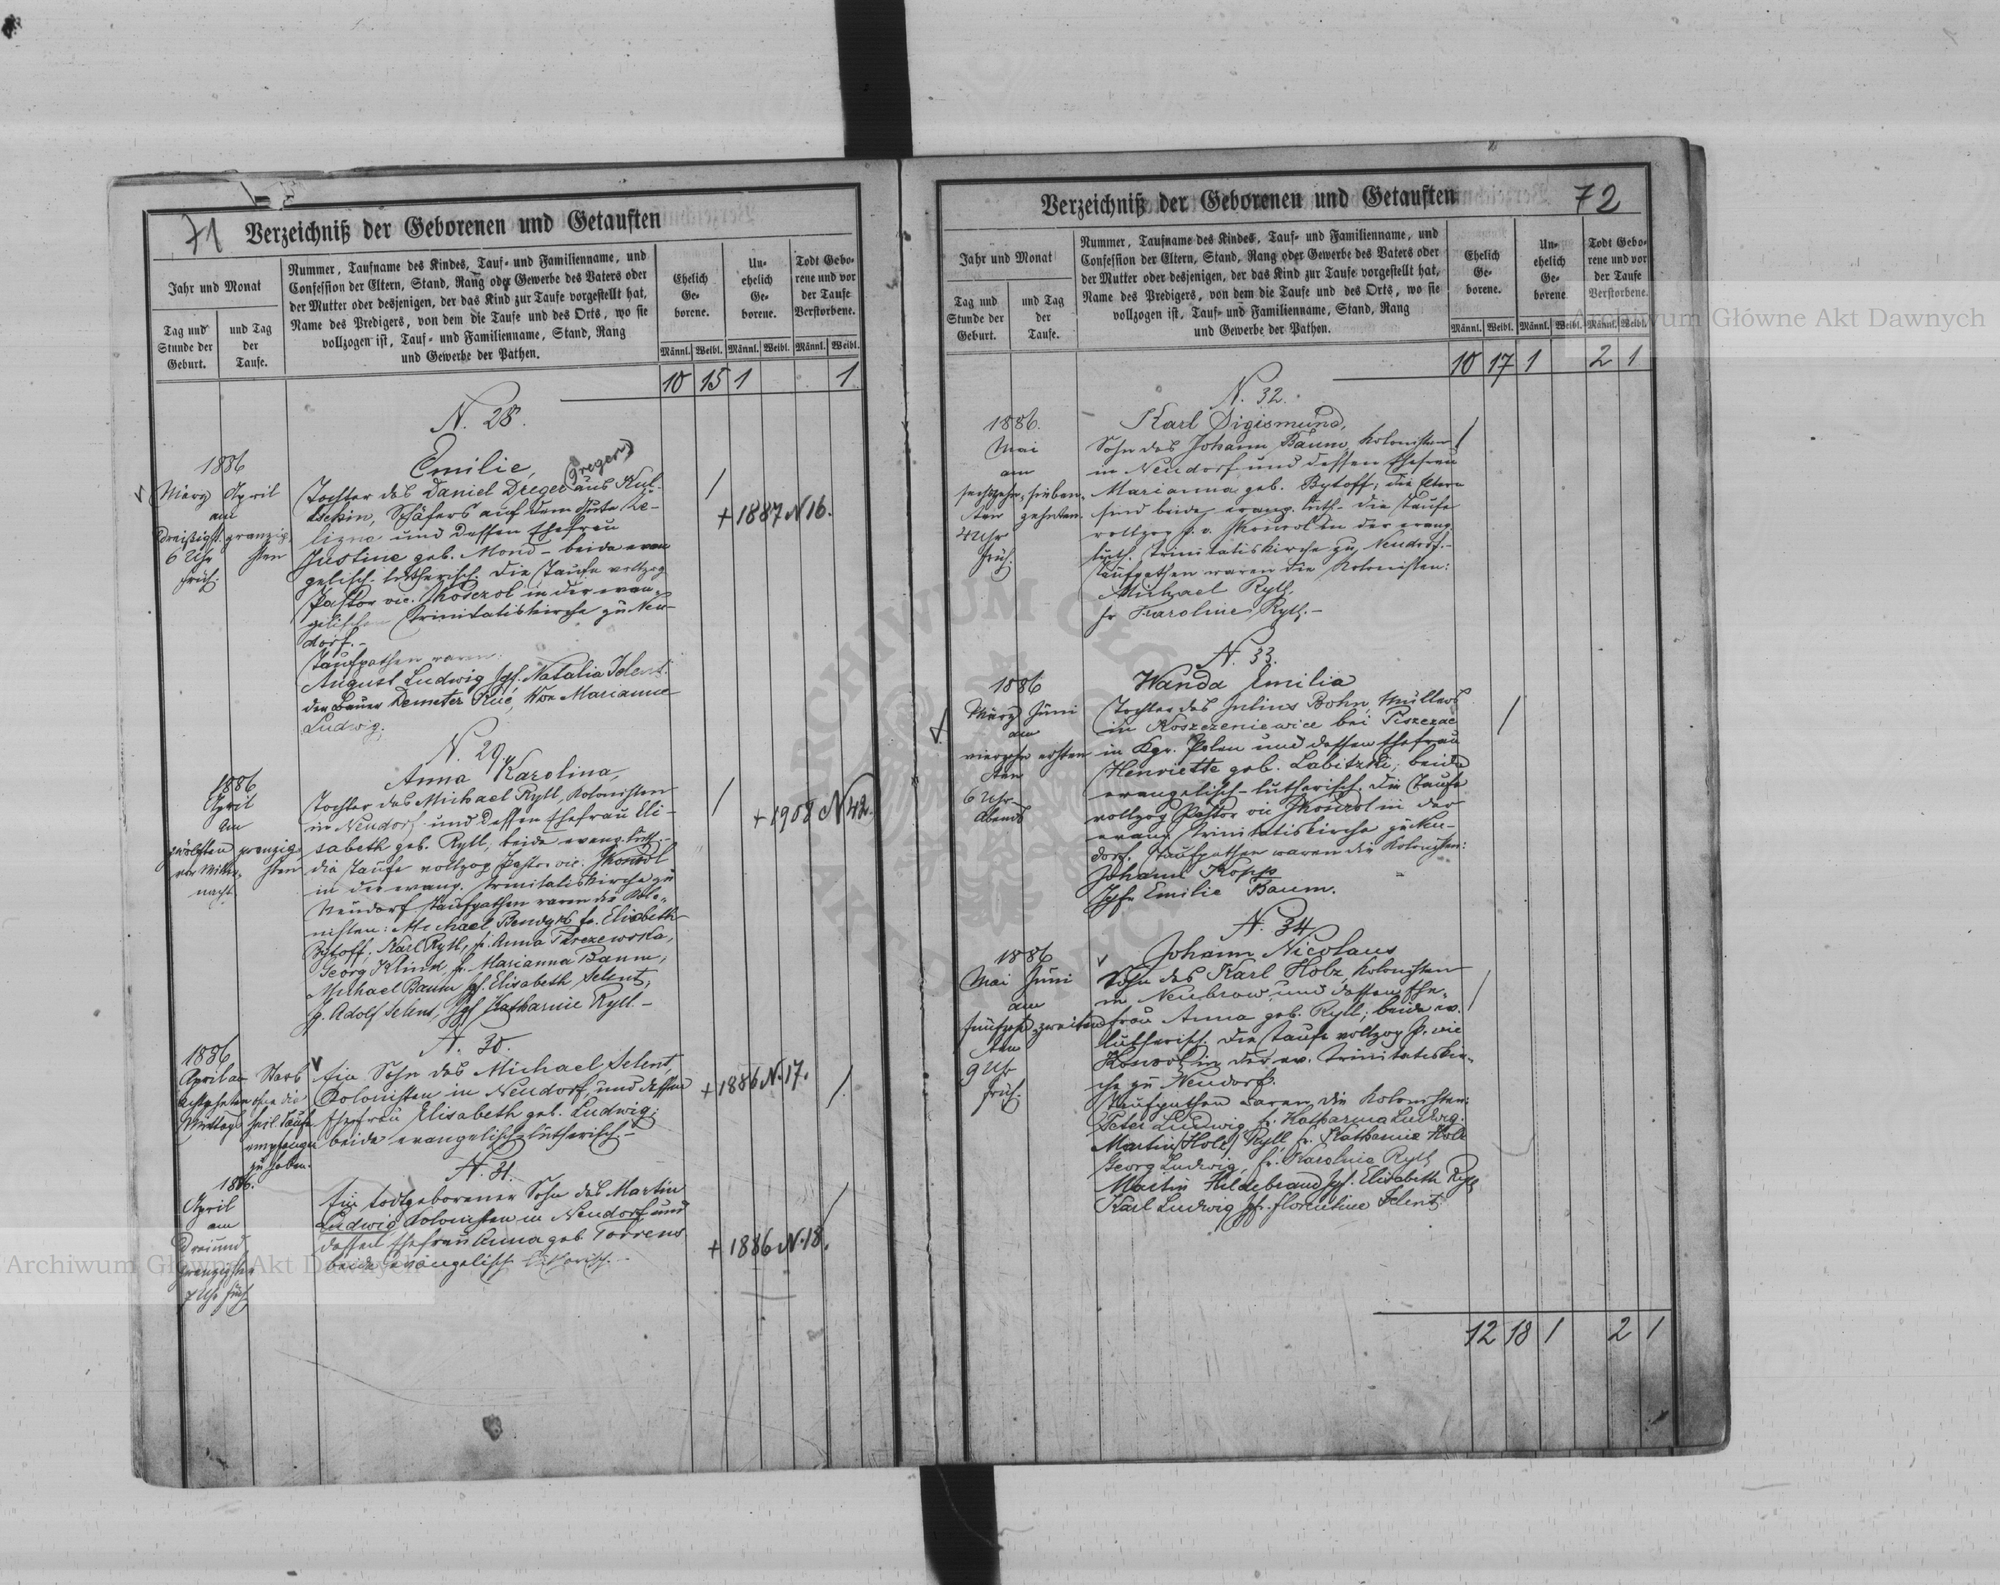 71
Verzeichniß der Geborenen und Getauften
Jahr und Monat
Tag und
Stunde der
Geburt.
und Tag
der
Taufe.
Nummer, Taufname des Kindes, Tauf- und Familienname, und
Confession der Eltern, Stand, Rang oder Gewerbe des Vaters oder
der Mutter oder desjenigen, der das Kind zur Taufe vorgestellt hat,
Name des Predigers, von dem die Taufe und des Orts, wo sie
vollzogen ist, Tauf- und Familienname, Stand, Rang
und Gewerbe der Pathen.
Ehelich
Ge-
borene.
Un-
ehelich
Ge-
borene.
Todt Gebo-
rene und vor
der Taufe
Verstorbene.
Männl. Weibl. Männl. Weibl. Männl. Weibl.
10 15 1 1
N. 28.
1886
März April
am
dreißigst. zwanzig-
6 Uhr sten
früh.
Emilie,
(Dreger)
Tochter des Daniel Dreger aus Kul-
Schäfers auf dem Gute Ze-
lizna und dessen Ehefrau
Justine geb. Mond – beide evan
gelisch-lutherisch. Die Taufe vollzog
Pastor vic. in der evan-
gelischen Trinitatiskirche zu Neu-
dorf. –
Taufpathen waren:
August Ludwig Jgf. Natalia Selent.
der Bauer Demeter Kuć, Marianne
Ludwig.
/
+ 1887 N 16.
N. 29.
1886
April
am
zwölften zwanzig-
vor Mitter- sten
nacht.
Anna Karolina,
Tochter des Michael Ryll, Kolonisten
in Neudorf und dessen Ehefrau Eli-
sabeth geb. Ryll, beide evang. luth. –
die Taufe vollzog Pastor vic.
in der evang. Trinitatiskirche zu
Neudorf. Taufpathen waren die Kolo-
nisten: Michael fr. Elisabeth
Bytoff, Karl Ryll, fr. Anna
Georg fr. Marianna Baum,
Michael Baum jgf. Elisabeth Selent,
j. Adolf Selent, Jgf. Katharine Ryll. –
/
+ 1908 N 42.
N. 30.
1886
April am Starb
achtzehnten ohne die
Mittags heil. Taufe
empfangen
zu haben.
Ein Sohn des Michael Selent,
Kolonisten in Neudorf, und dessen
Ehefrau Elisabeth geb. Ludwig;
beide evangelisch-lutherisch. –
+ 1886 N. 17.
/
N. 31.
1886.
April
am
Dreiund
zwanzigsten
7 Uhr früh
Ein todtgeborener Sohn des Martin
Ludwig Kolonisten in Neudorf und
dessen Ehefrau Anna geb.
beide evangelisch lutherisch. –
+ 1886 N. 18.
/
72
Verzeichniß der Geborenen und Getauften
Jahr und Monat
Tag und
Stunde der
Geburt.
und Tag
der
Taufe.
Nummer, Taufname des Kindes, Tauf- und Familienname, und
Confession der Eltern, Stand, Rang oder Gewerbe des Vaters oder
der Mutter oder desjenigen, der das Kind zur Taufe vorgestellt hat,
Name des Predigers, von dem die Taufe und des Orts, wo sie
vollzogen ist, Tauf- und Familienname, Stand, Rang
und Gewerbe der Pathen.
Ehelich
Ge-
borene.
Un-
ehelich
Ge-
borene.
Todt Gebo-
rene und vor
der Taufe
Verstorbene.
Männl. Weibl. Männl. Weibl. Männl. Weibl.
10 17 1 2 1
N. 32.
1886.
Mai
am
sechszehn- sieben-
ten zehnten.
4 Uhr
früh.
Karl Sigismund,
Sohn des Johann Baum, Kolonisten
in Neudorf und dessen Ehefrau
Marianna geb. Bytoff; die Eltern
sind beide evang. luth. – die Taufe
vollzog p. v. in der evang.
luth. Trinitatiskirche zu Neudorf. –
Taufpathen waren die Kolonisten:
Michael Ryll,
fr Karoline Ryll. –
/
N. 33.
1886
März Juni
am
vierzehn ersten
ten
6 Uhr
Abends
Wanda Emilia
Tochter des Julius Bohn, Müllers
in Koszczeniewice bei Piszczac
in Kgr. Polen und dessen Ehefrau
Henriette geb. Labitzki; beide
evangelisch-lutherisch. Die Taufe
vollzog Pastor vic in der
evang. Trinitatiskirche zu Neu-
dorf. Taufpathen waren die Kolonisten:
Johann Kopp
Jgfr. Emilie Baum.
/
N. 34
1886
Mai Juni
am
fünfzehn- zweiten
ten
9 Uhr
früh.
Johann Nicolaus
Sohn des Karl Holz, Kolonisten
in Neubrow und dessen Ehe-
frau Anna geb. Ryll; beide ev.
lutherisch. Die Taufe vollzog P. vic
in der ev. Trinitatiskir-
che zu Neudorf.
Taufpathen waren die Kolonisten:
Peter Ludwig, fr. Katharina Ludwig.
Martin Holz/Ryll, fr. Katharine Holz
Georg Ludwig, fr. Karoline Ryll
Martin Hildebrand jgf. Elisabeth Ryll
Karl Ludwig jgf. Florentine Selent
/
12 18 1 2 1
Archiwum Główne Akt Dawnych
Archiwum Główne Akt Dawnych